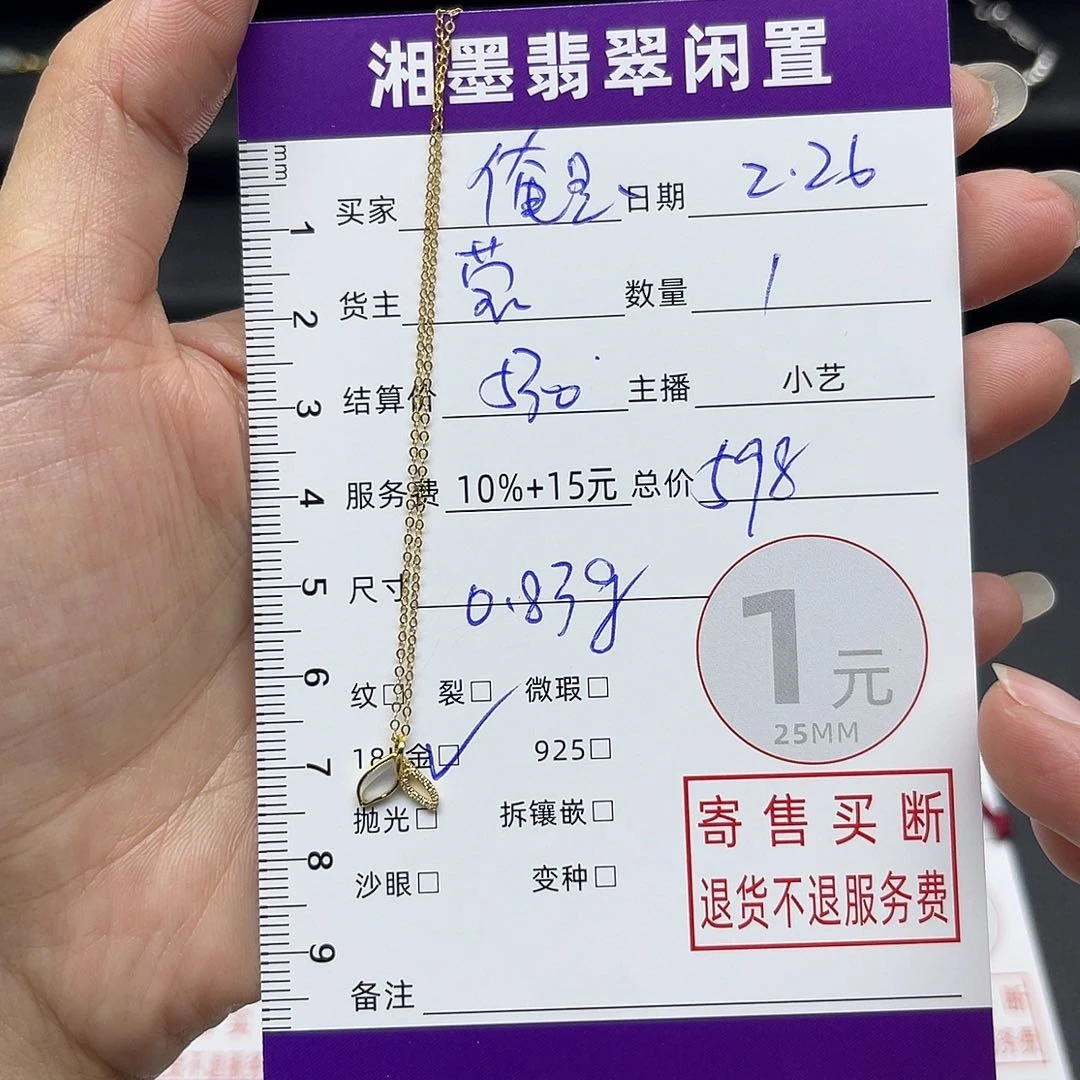 湘墨翡翠闲置
mm
买家 俺是、 日期 2.26
1
货主 蒙 数量 1
2
结算价 530 主播 小艺
3
服务费 10%+15元 总价 598
4
尺寸 0.83g
5
1元
25MM
6
纹□ 裂□ 微瑕□
18K金□ ✓ 925□
7
抛光□ 拆镶嵌□
8
沙眼□ 变种□
寄售买断
退货不退服务费
9
备注